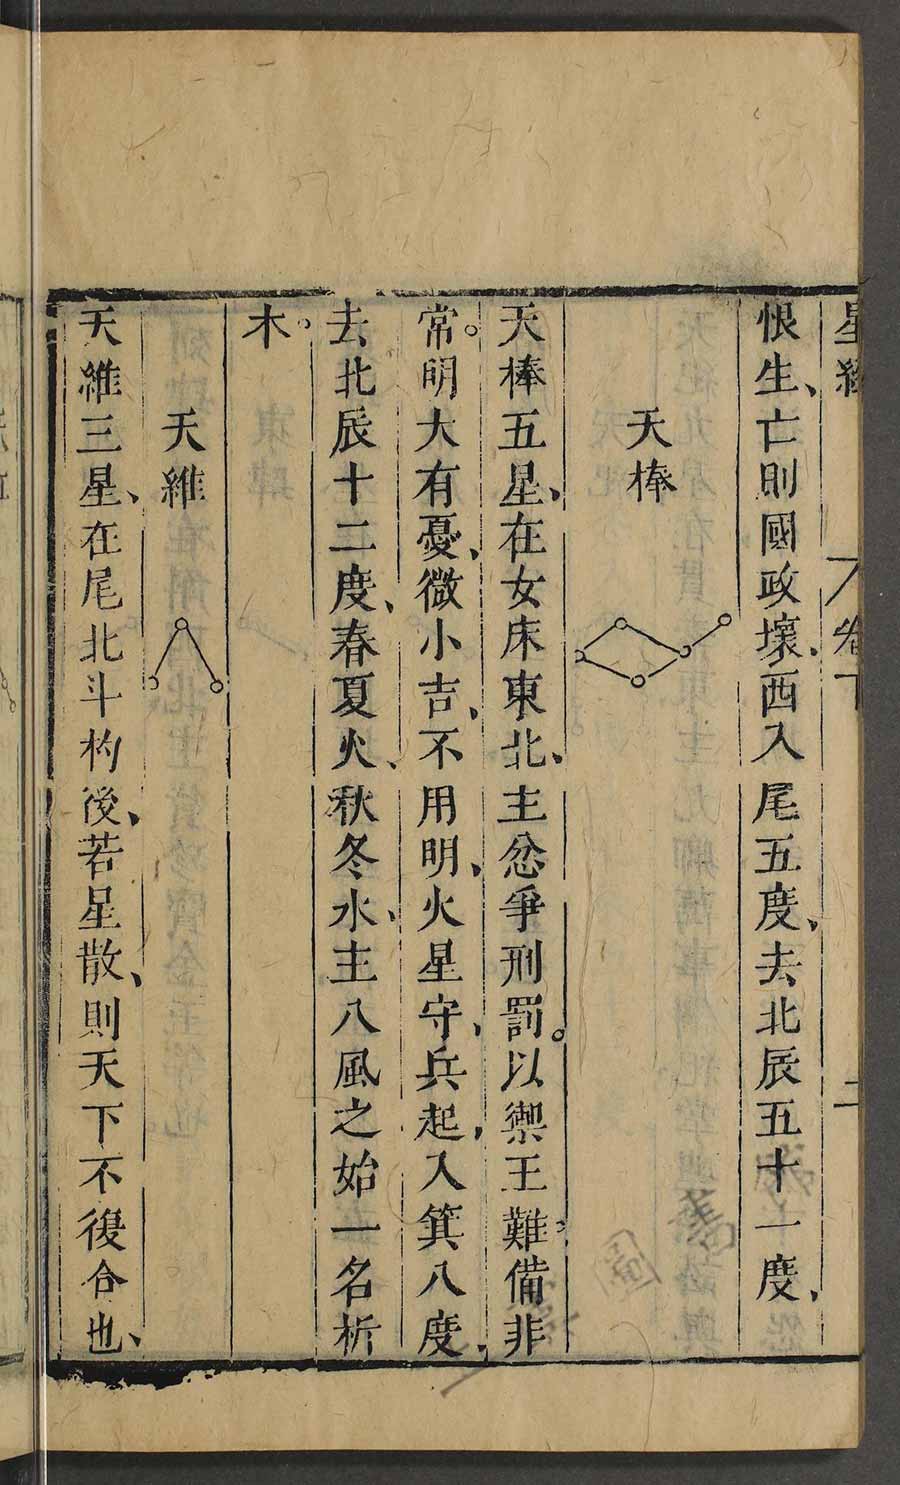 星經 卷下 二
恨生、亡則國政壞、西入尾五度、去北辰五十一度、
天棒
天棒五星、在女床東北、主忿爭刑罰。以禦王難備非
常。明大有憂、微小吉、不用明、火星守、兵起、入箕八度、
去北辰十二度、春夏火、秋冬水、主八風之始一名析
木。
天維
天維三星、在尾北斗杓後、若星散、則天下不復合也、